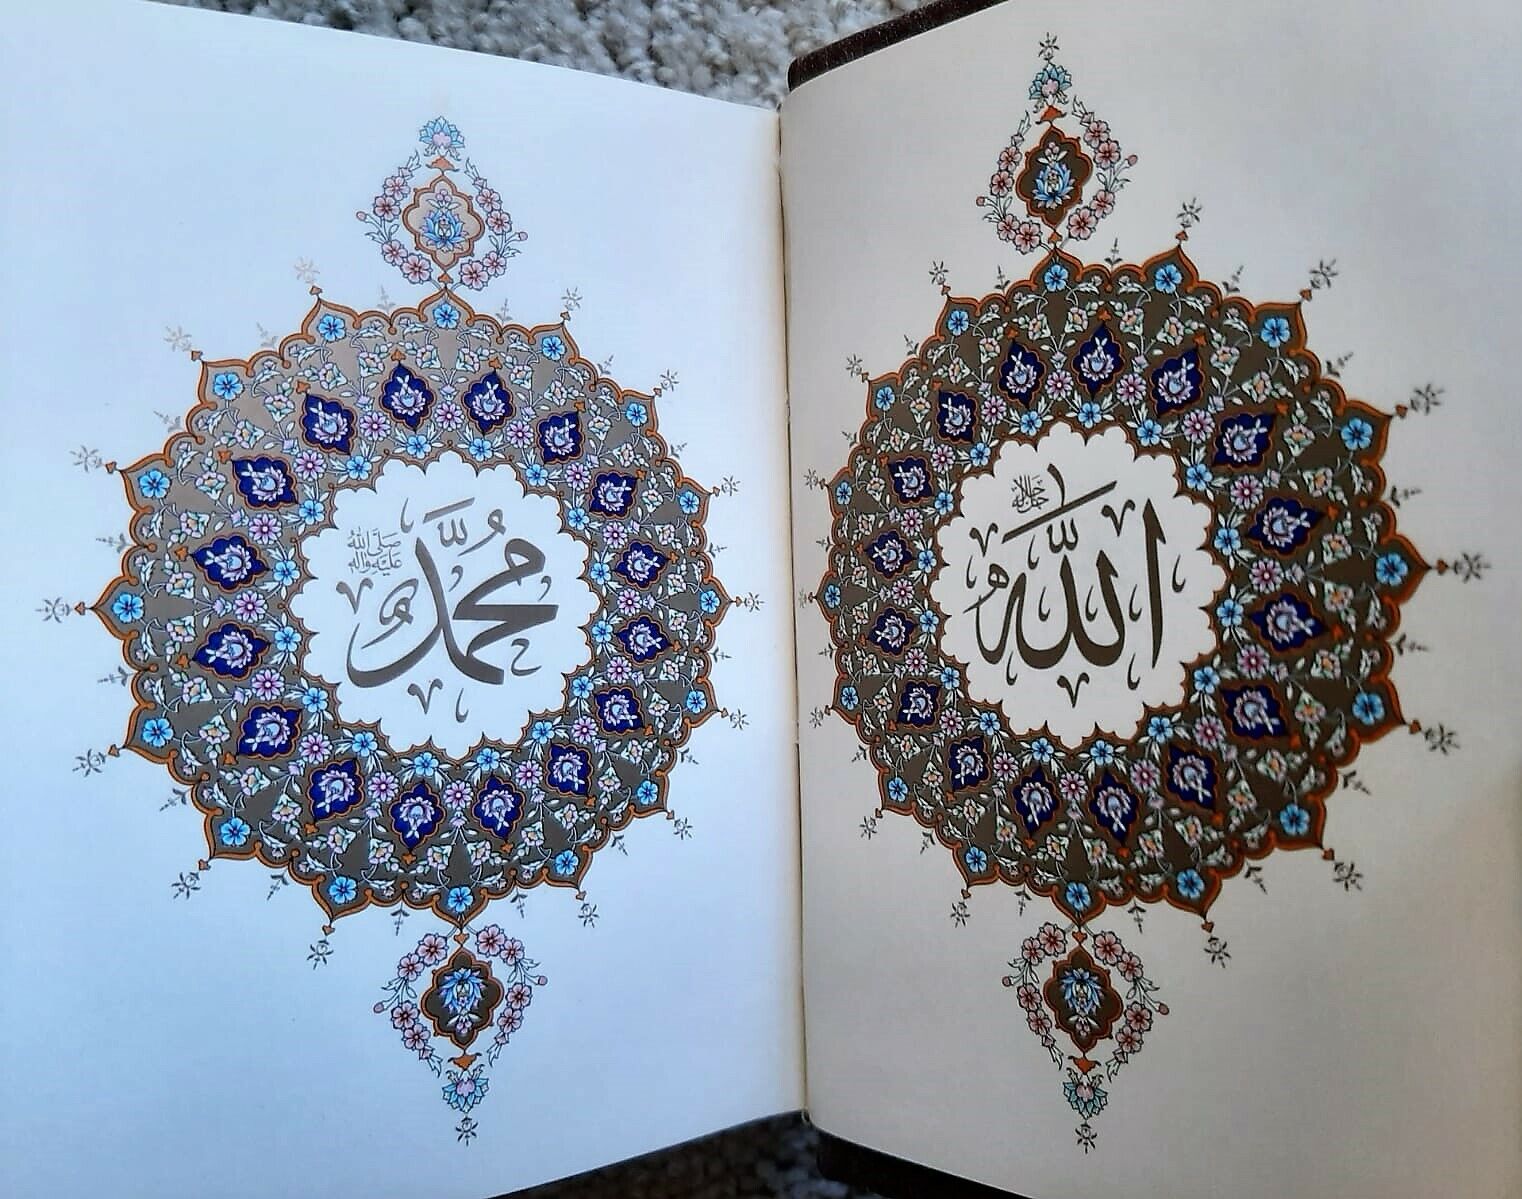 الله
جل جلاله
محمد
صلى الله
عليه وآله